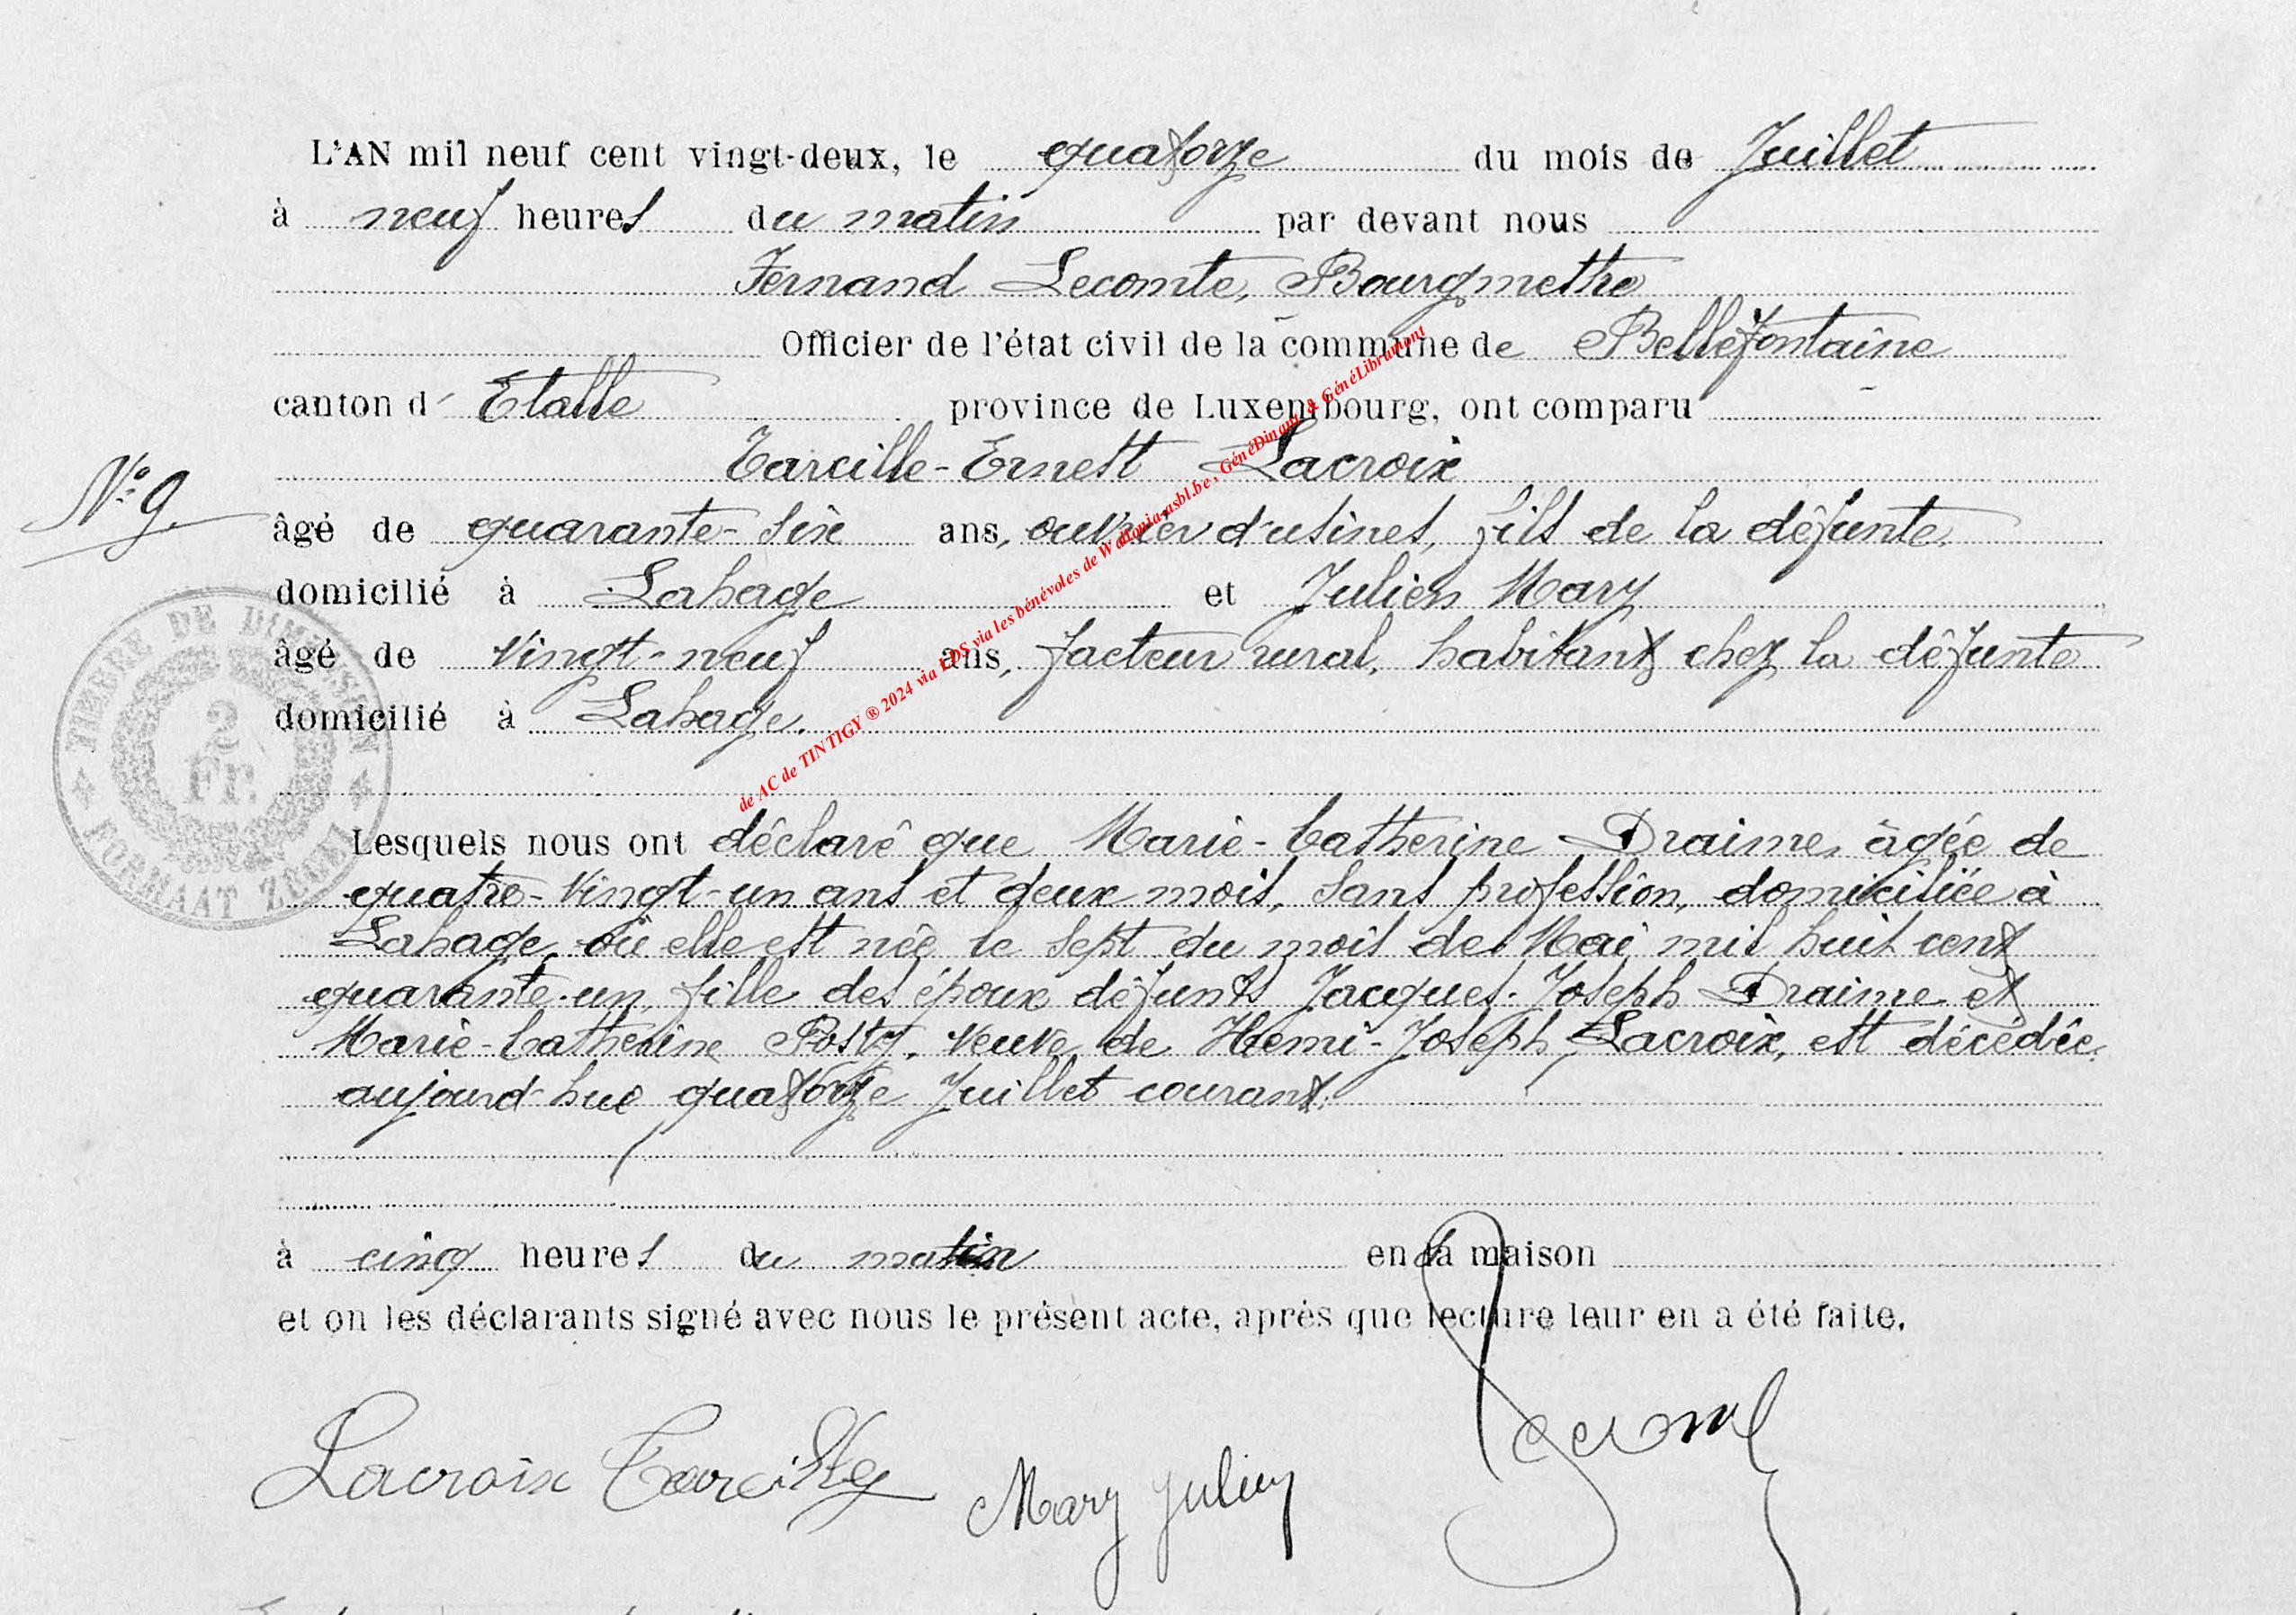 L'AN mil neuf cent vingt-deux, le quatorze du mois de Juillet
à neuf heures du matin par devant nous
Fernand Lecomte, Bourgmestre
Officier de l'état civil de la commune de Bellefontaine
canton d' Etalle province de Luxembourg, ont comparu
Tarcille-Ernest Lacroix
N° 9.
âgé de quarante-six ans, ouvrier d'usines, fils de la défunte,
domicilié à Lahage et Julien Mary
âgé de vingt-neuf ans, facteur rural, habitant chez la défunte
domicilié à Lahage.
TIMBRE DE DIMENSION
2
Fr.
FORMAAT ZEGEL
de AC de TINTIGY ® 2024 via LDS via les bénévoles de Wallonia-asbl.be, GénéDinant & GénéLibramont
Lesquels nous ont déclaré que Marie-Catherine Draime, âgée de
quatre-vingt-un ans et deux mois, sans profession, domiciliée à
Lahage, où elle est née le sept du mois de Mai mil huit cent
quarante-un, fille des époux défunts Jacques-Joseph Draime et
Marie-Catherine Posty, veuve de Henri-Joseph Lacroix, est décédée
aujourd'hui quatorze Juillet courant.
à cinq heures du matin en sa maison
et on les déclarants signé avec nous le présent acte, après que lecture leur en a été faite.
Lacroix Tarcille Mary Julien